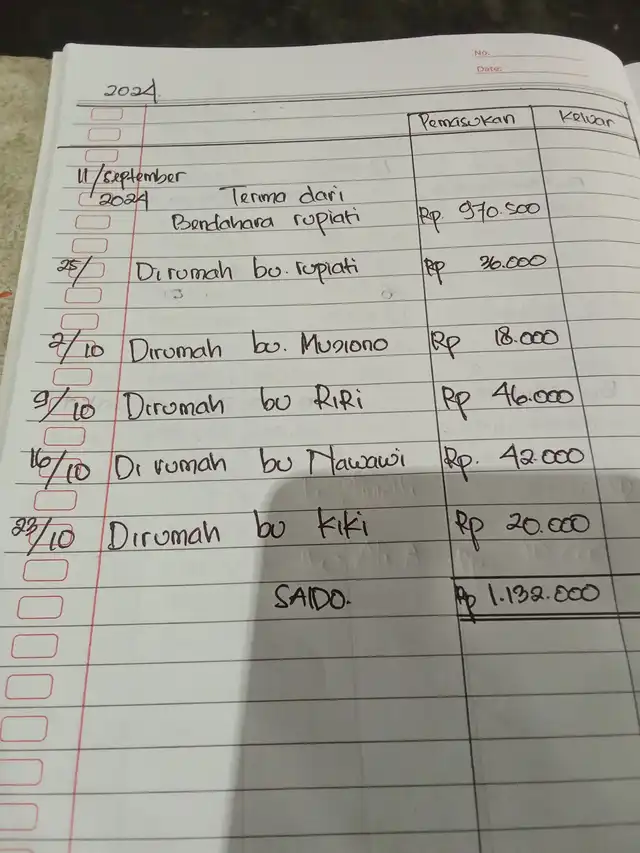 No.
Date:
2024.
Pemasukan Keluar
11/september
2024 Terima dari
Bendahara rupiati Rp. 970.500
25/ Dirumah bu. rupiati Rp 36.000
2/10 Dirumah bu. Mugiono Rp 18.000
9/10 Dirumah bu RiRi Rp 46.000
16/10 Di rumah bu Nawawi Rp. 42.000
23/10 Dirumah bu kiki Rp 20.000
SAlDO. Rp 1.132.000